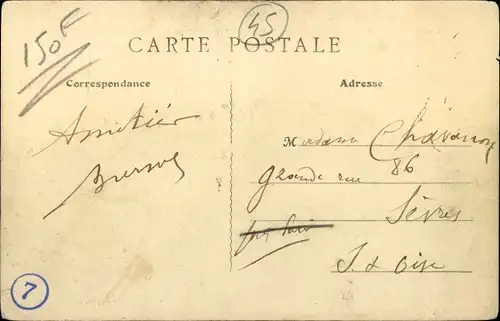 150F
45
CARTE POSTALE
Correspondance
Adresse
Amitiés
Madame Chavanon
86
Grande rue
Sèvres
S. & Oise
7